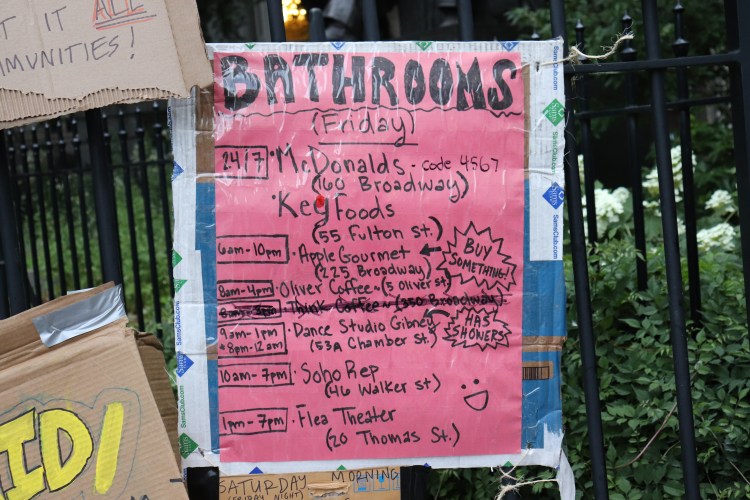 T IT ALL
MMUNITIES!
BATHROOMS
(Friday)
24/7 • McDonalds - code 4567
(160 Broadway)
• Key Foods
(55 Fulton St.)
6am-10pm • Apple Gourmet
(225 Broadway)
BUY SOMETHING!
8am-4pm • Oliver Coffee ~ (5 Oliver St)
Think Coffee ~ (350 Broadway)
9am-1pm • Dance Studio Gibney
+ 8pm-12am (53A Chamber St.)
HAS SHOWERS
10am-7pm • Soho Rep
(46 Walker St)
1pm-7pm • Flea Theater
(20 Thomas St.)
SATURDAY MORNING
(FRIDAY NIGHT)
ID!
SamsClub.com
SamsClub.com
SamsClub.com
SamsClub.com
SamsClub.com